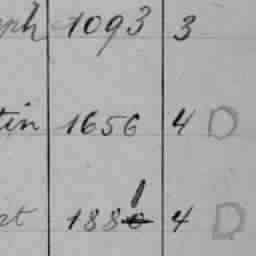 ph 1093 3
tin 1656 4 D
st 1881 4 D